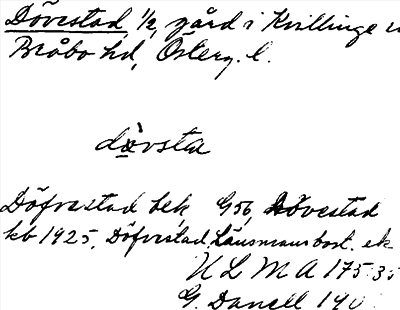 Dövestad, 1/2, gård i Kvillinge
Bråbo hd, Österg. l.
dövsta
Döfvestad bek G56, Dövestad
kb 1925, Döfvestad, Länsmansbost. ek
ULMA 175:35
G. Danell 190